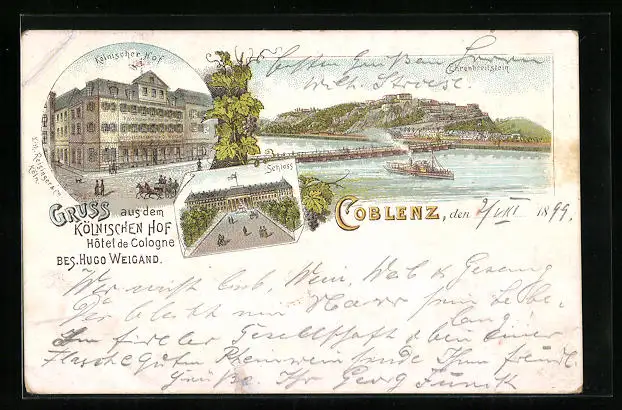 Kölnischer Hof
Besten Grüßen
Wilh. Stroese.
Ehrenbreitstein
Schloss
Gruss aus dem
Kölnischen Hof
Hôtel de Cologne
Bes. Hugo Weigand.
Coblenz, den 9/VII 1899.
Wer nicht liebt, Wein, Weib & Gesang
Der bleibt ein Narr sein Lebe-
lang!
In fideler Gesellschaft & bei einer
Flasche guten Rheinwein sende Ihnen freundl.
Grüße. Ihr Georg